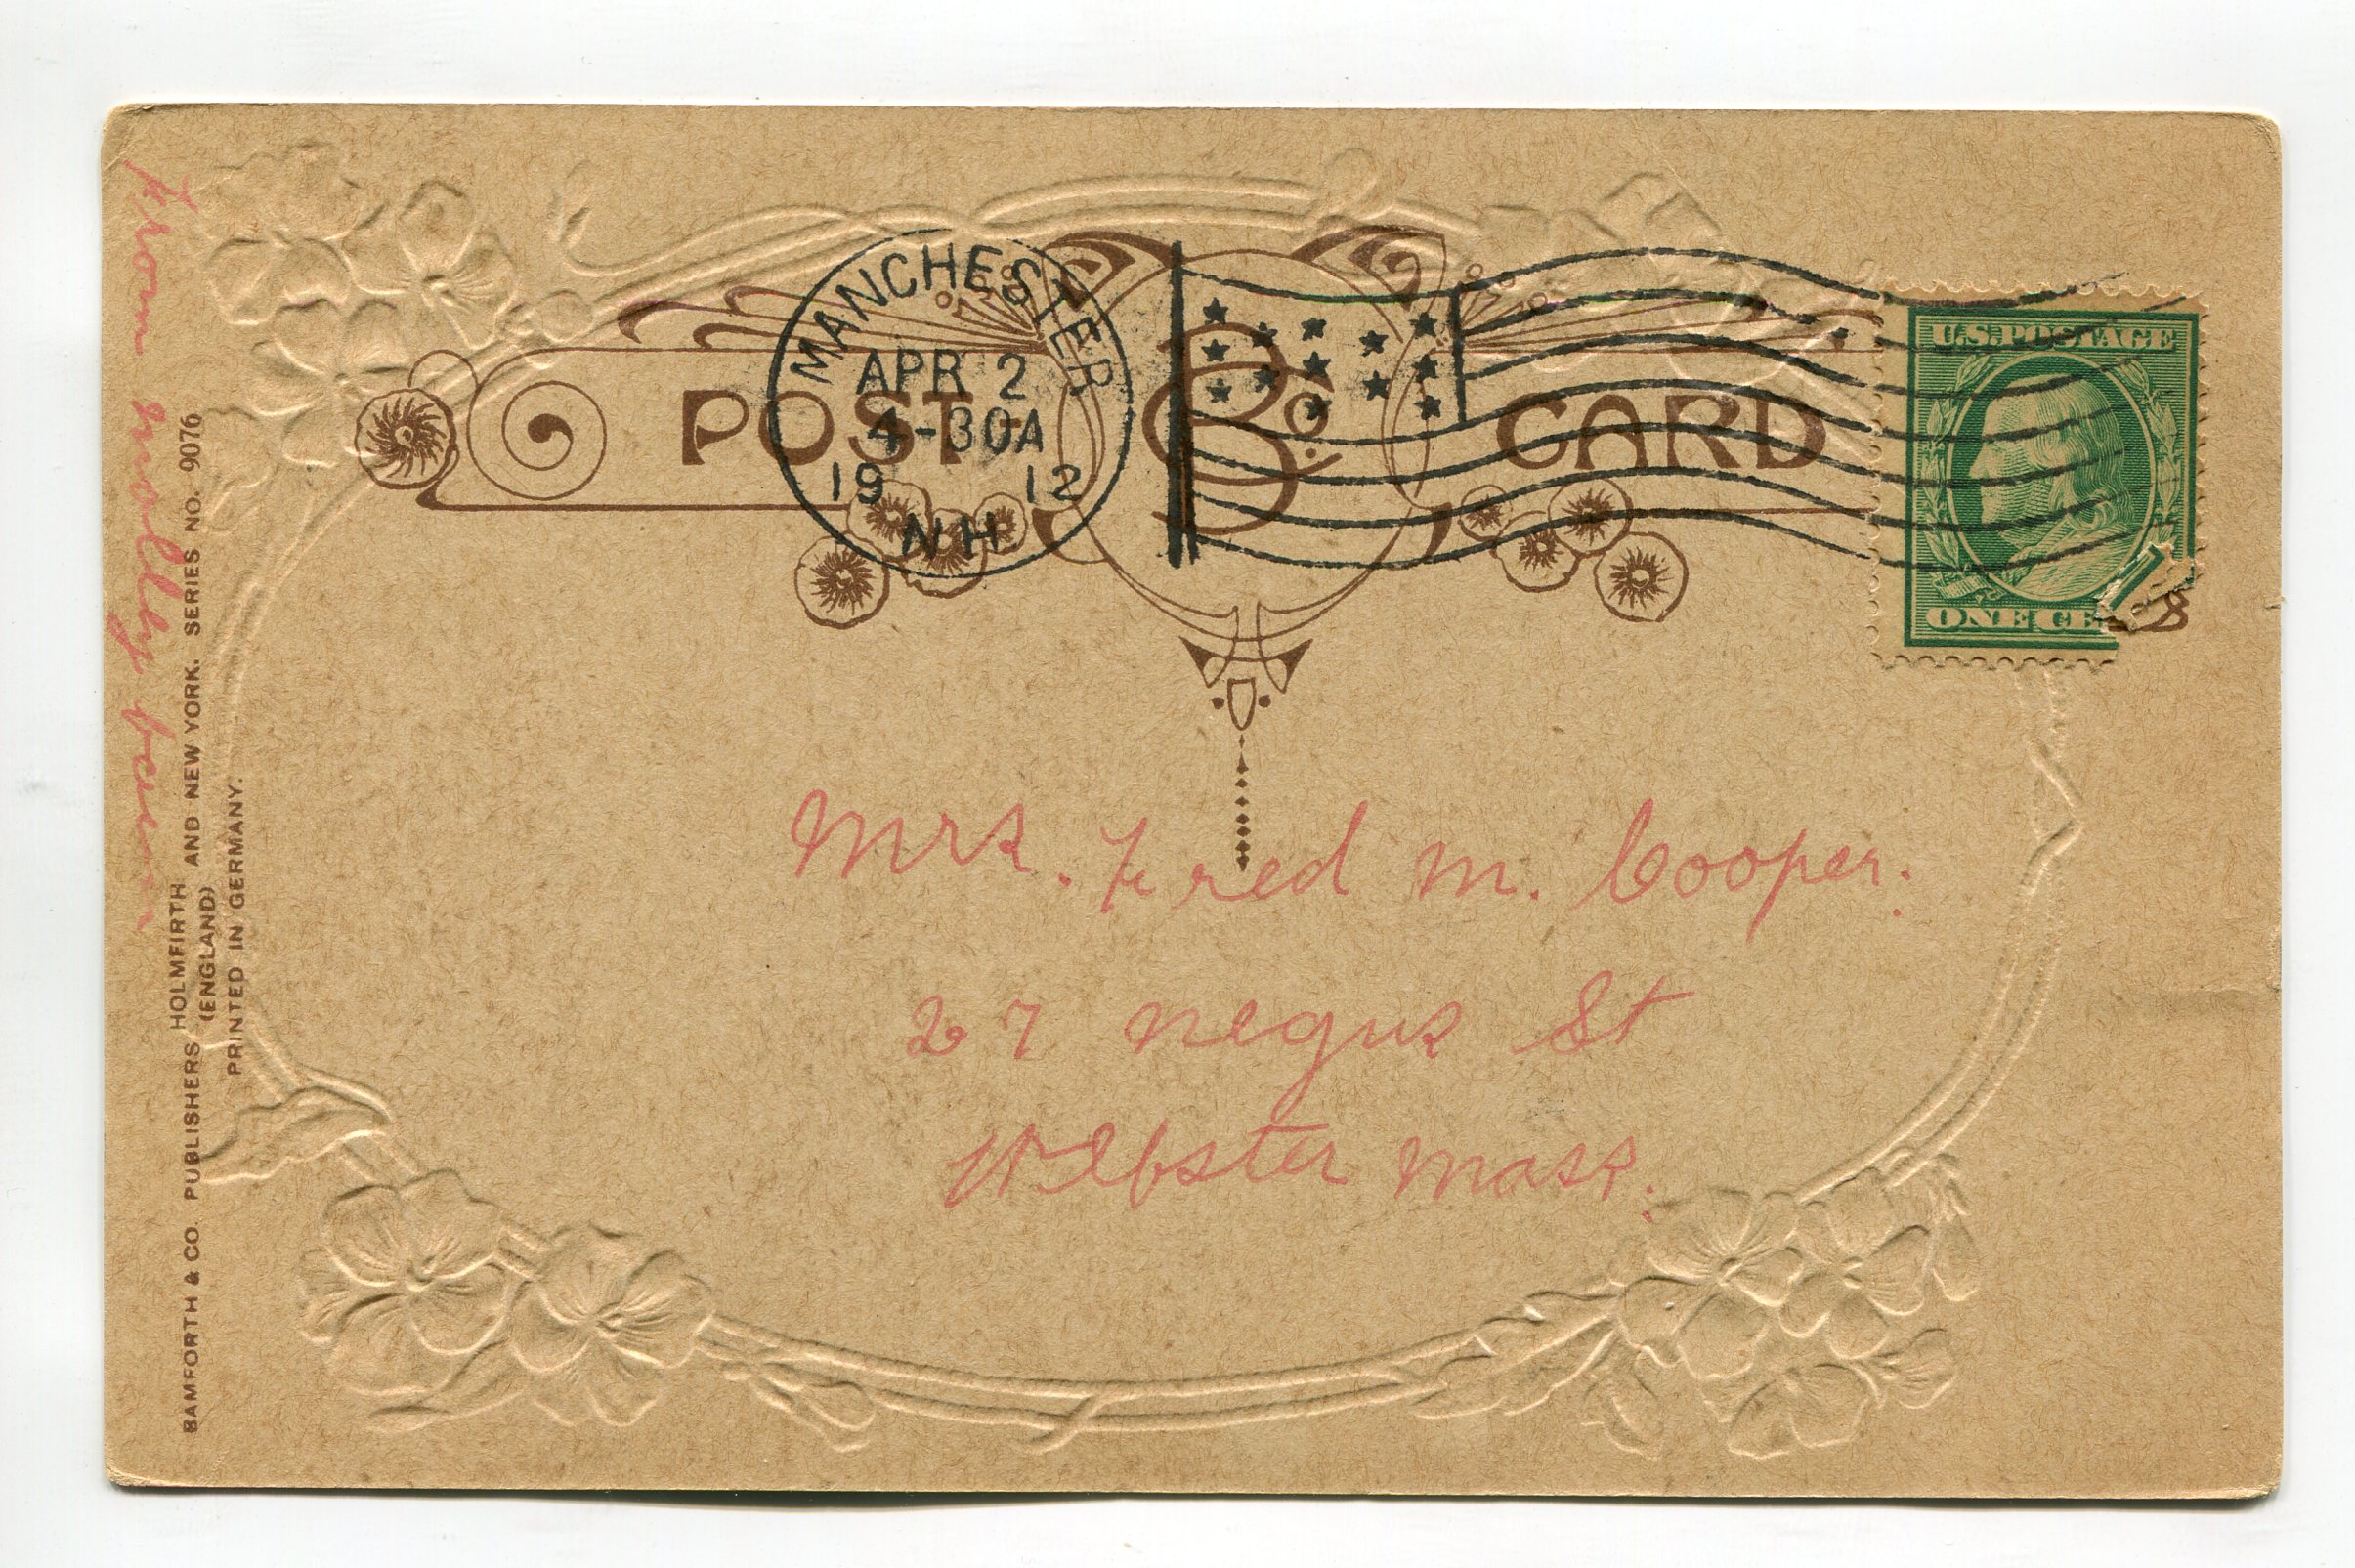 POST CARD
B & Co.
MANCHESTER
APR 2
4-30A
1912
N.H.
U.S. POSTAGE
ONE CE
Mrs. Fred M. Cooper.
27 Negus St
Webster Mass.
From Molly
BAMFORTH & CO. PUBLISHERS HOLMFIRTH AND NEW YORK. SERIES NO. 9076
(ENGLAND)
PRINTED IN GERMANY.